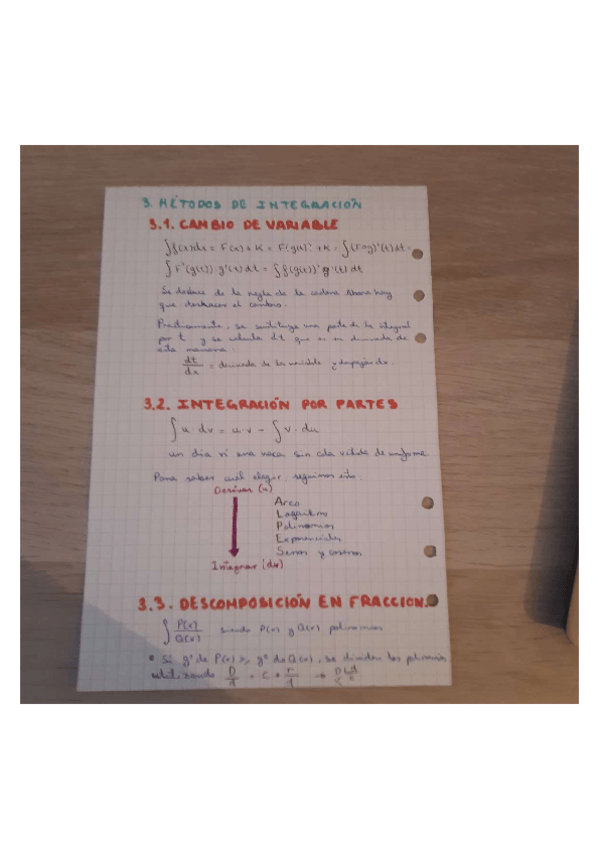 3. MÉTODOS DE INTEGRACIÓN
3.1. CAMBIO DE VARIABLE
∫f(x)dx = F(x)+K = F(g(t)) + K = ∫(F∘g)'(t)dt =
∫F'(g(t)) g'(t) dt = ∫f(g(t)) g'(t) dt
Se deduce de la regla de la cadena. Ahora hay
que deshacer el cambio.
Prácticamente, se sustituye una parte de la integral
por t y se calcula dt que es su derivada de
esta manera:
dt/dx = derivada de la variable y despejar dx
3.2. INTEGRACIÓN POR PARTES
∫u · dv = u·v - ∫v · du
un día vi una vaca sin cola vestida de uniforme
Para saber cuál elegir, seguimos esto:
Derivar (u)
Arco
Logaritmo
Polinomios
Exponenciales
Senos y cosenos
Integrar (dv)
3.3. DESCOMPOSICIÓN EN FRACCION.
∫P(x)/Q(x) siendo P(x) y Q(x) polinomios
* Si gº de P(x) ≥ gº de Q(x), se dividen los polinomios
utilizando D/d = C + r/d →